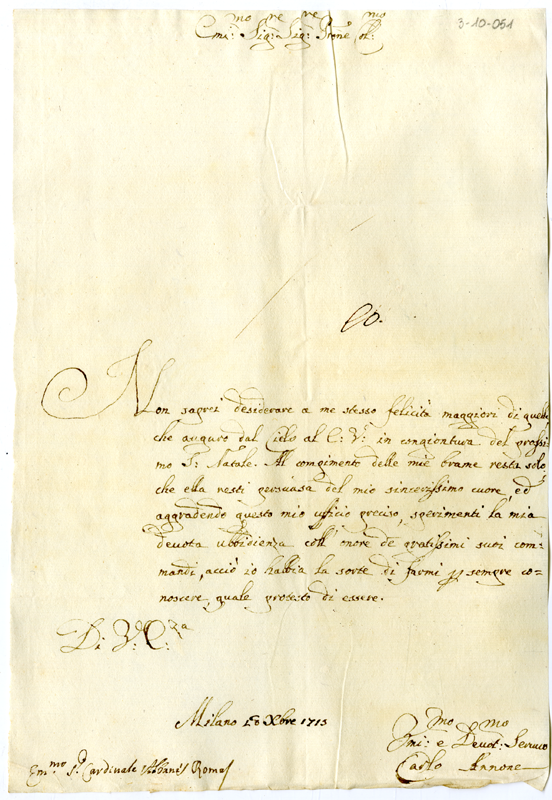 3-10-051
Em:mo Sig:re Sig:re Prone Col:mo
Non saprei desiderare a me stesso felicità maggiori di quelle
che auguro dal Cielo al E: V:a in congiontura del prossi-
mo S: Natale. Al compimento delle mie brame resta solo
che ella resti persuasa del mio sincerissimo cuore, ed
aggradendo questo mio ufficio preciso, sperimenti la mia
devota ubbidienza coll' onore de gratissimi suoi com-
mandi, acciò io habbia la sorte di farmi per sempre co-
noscere, quale protesto di essere.
Di V:a E:za
Milano Xbre 1713
Umi:mo e Devot:mo Servo
Carlo Annone
Em:mo S:r Cardinale Albani Roma